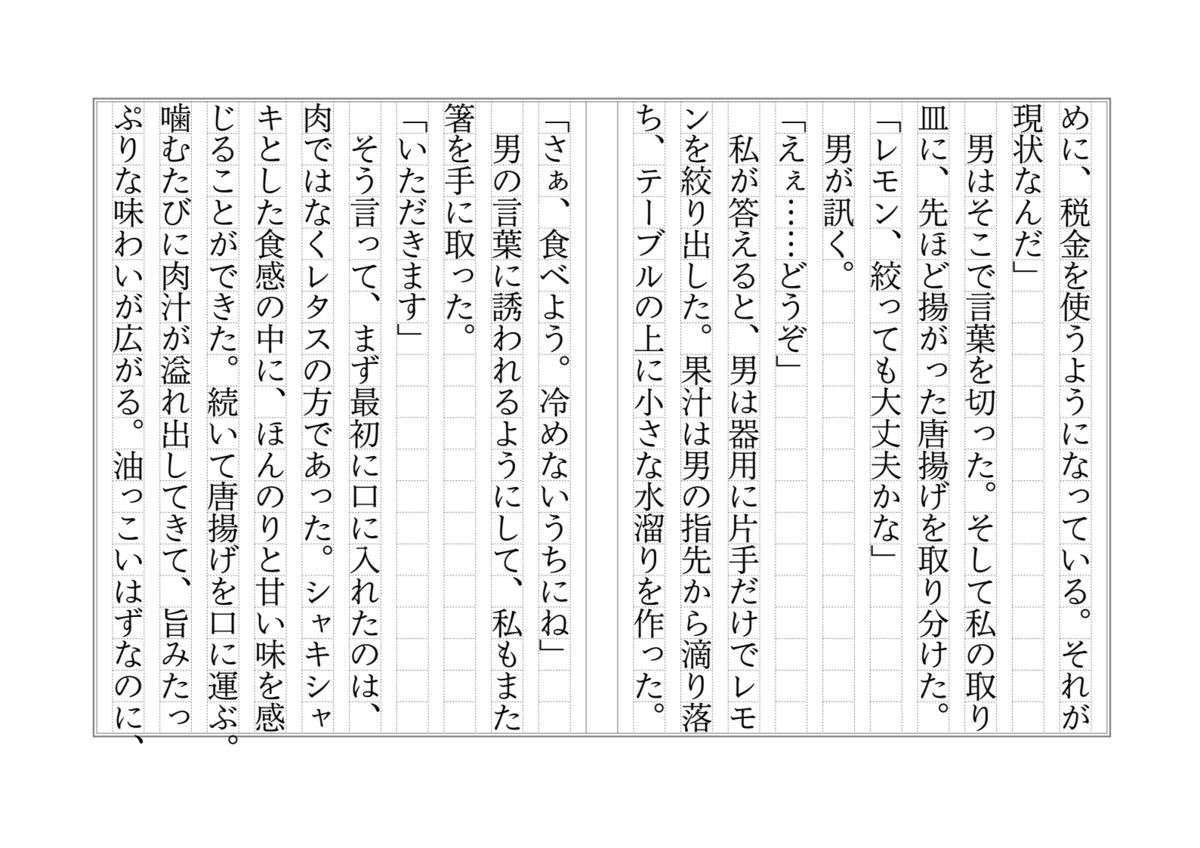 めに、税金を使うようになっている。それが
現状なんだ」
　男はそこで言葉を切った。そして私の取り
皿に、先ほど揚がった唐揚げを取り分けた。
「レモン、絞っても大丈夫かな」
　男が訊く。
「えぇ……どうぞ」
　私が答えると、男は器用に片手だけでレモ
ンを絞り出した。果汁は男の指先から滴り落
ち、テーブルの上に小さな水溜りを作った。
「さぁ、食べよう。冷めないうちにね」
　男の言葉に誘われるようにして、私もまた
箸を手に取った。
「いただきます」
　そう言って、まず最初に口に入れたのは、
肉ではなくレタスの方であった。シャキシャ
キとした食感の中に、ほんのりと甘い味を感
じることができた。続いて唐揚げを口に運ぶ。
噛むたびに肉汁が溢れ出してきて、旨みたっ
ぷりな味わいが広がる。油っこいはずなのに、